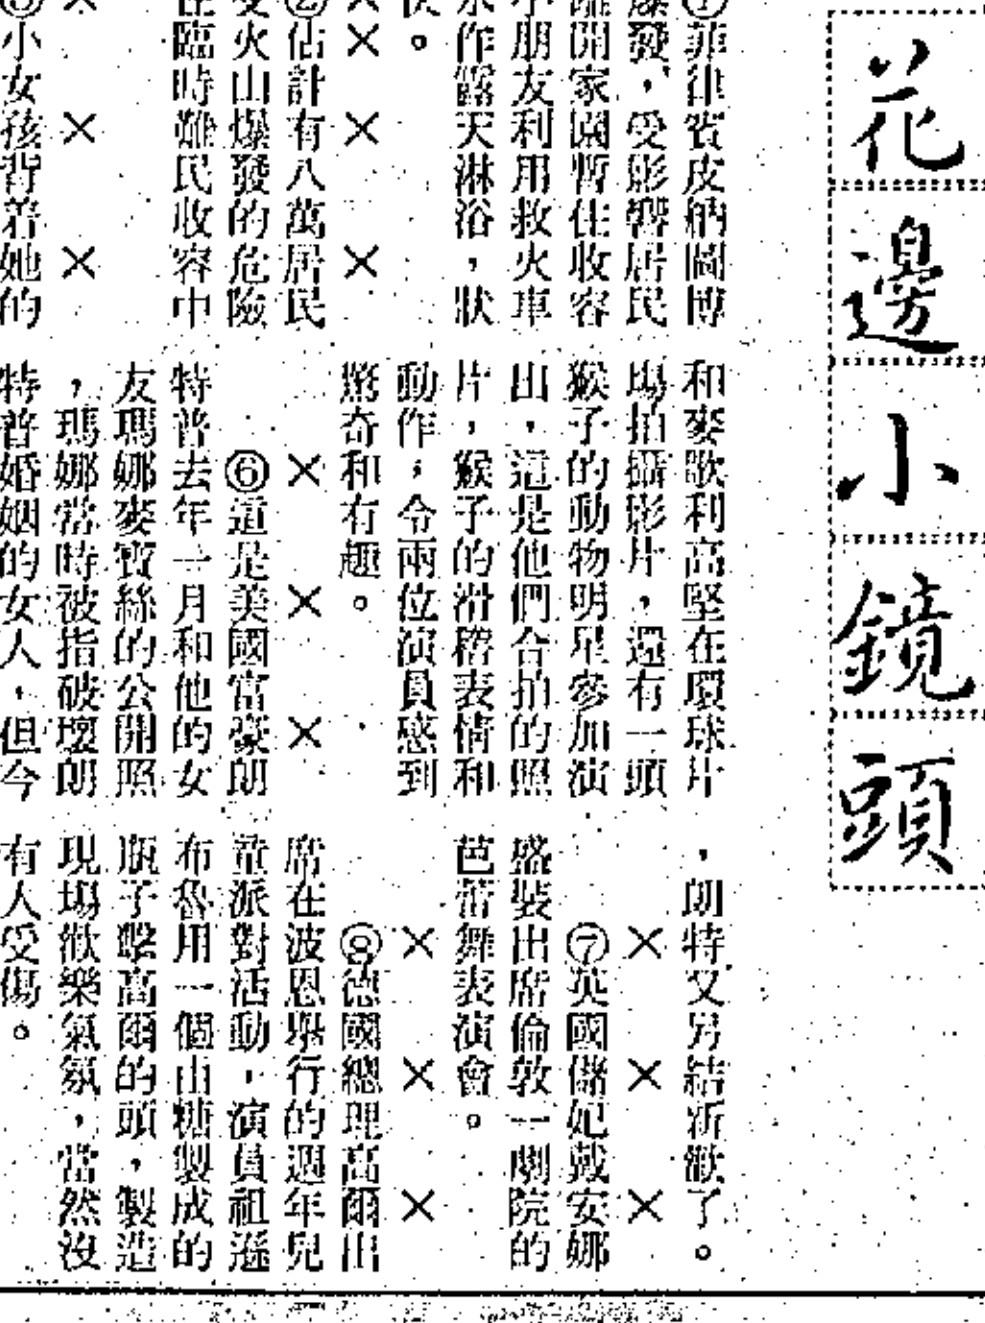 花邊小鏡頭
①菲律賓皮納圖博
爆發，受影響居民
離開家園暫住收容
小朋友利用救火車
水作露天淋浴，狀
。
×××
②估計有八萬居民
受火山爆發的危險
在臨時難民收容中
××
③小女孩背着她的
和麥歌利高堅在環球片
場拍攝影片，還有一頭
猴子的動物明星參加演
出，這是他們合拍的照
片，猴子的滑稽表情和
動作，令兩位演員感到
驚奇和有趣。
×××
⑥這是美國富豪朗
特普去年一月和他的女
友瑪娜麥寶絲的公開照
，瑪娜當時被指破壞朗
特普婚姻的女人，但今
，朗特又另結新歡了。
×××
⑦英國儲妃戴安娜
盛裝出席倫敦一劇院的
芭蕾舞表演會。
×××
⑧德國總理高爾出
席在波恩舉行的週年兒
童派對活動，演員祖遜
布魯用一個由糖製成的
瓶子擊高爾的頭，製造
現場歡樂氣氛，當然沒
有人受傷。